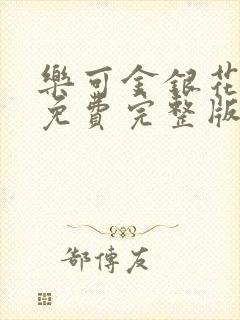 樂可金銀花
免費完整版
郜傳友